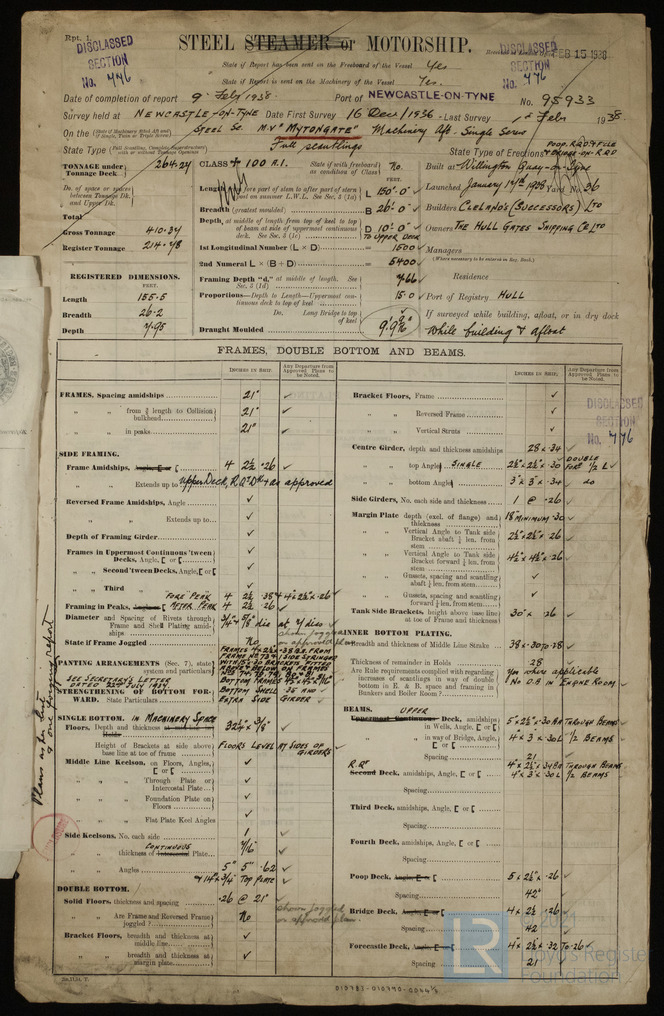 Rpt. 1.
DISCLASSED
SECTION
No. 776
STEEL STEAMER or MOTORSHIP.
DISCLASSED
SECTION
No. 776
FEB 15 1938
State if Report has been sent on the Freeboard of the Vessel Yes
State if Report is sent on the Machinery of the Vessel Yes.
Date of completion of report 9 Feb 1938 Port of NEWCASTLE-ON-TYNE No. 95933
Survey held at NEWCASTLE-ON-TYNE Date First Survey 16 Dec 1936 - Last Survey 1st Feb 1938
On the (State if Machinery fitted Aft and if Single, Twin or Triple Screw) STEEL Sc. M.V "MYTONGATE" Machinery Aft. Single Screw
State Type (Full Scantling, Complete Superstructure with or without Tonnage Openings) Full scantlings State Type of Erections POOP, R.Q.D. & F'CLE
TONNAGE under Tonnage Deck 264.24
Do. of space or spaces between Tonnage Dk. and Upper Dk.
Total
Gross Tonnage 410.34
Register Tonnage 214.78
REGISTERED DIMENSIONS.
FEET.
Length 155.5
Breadth 26.2
Depth 7.95
CLASS + 100 A.1. State if with freeboard as condition of Class No.
FEET.
Length from fore part of stem to after part of stern post on summer L.W.L. See Sec. 3 (1a) L 150'.0"
Breadth (greatest moulded) B 26'.0"
Depth, at middle of length from top of keel to top of beam at side of uppermost continuous deck. See Sec. 3 (1c) D 10'.0" TO UPPER DECK
1st Longitudinal Number (L × D) = 1500
2nd Numeral L × (B + D) = 5400
Framing Depth "d," at middle of length. See Sec. 3 (1d) 7.66
Proportions—Depth to Length—Uppermost continuous deck to top of keel 15.0
Do. Long Bridge to top of keel
Draught Moulded
Built at Willington Quay-on-Tyne
Launched January 14th 1938 Yard No. 36
Builders CLELANDS (SUCCESSORS) LTD
Owners THE HULL GATES SHIPPING Co LTD
Managers
(Where necessary to be entered in Reg. Book.)
Residence
Port of Registry HULL
If surveyed while building, afloat, or in dry dock
While building & afloat
FRAMES, DOUBLE BOTTOM AND BEAMS.
INCHES IN SHIP. Any Departure from Approved Plans to be Noted.
FRAMES, Spacing amidships 21"
" " from ⅗ length to Collision bulkhead 21"
" " in peaks 21"
SIDE FRAMING.
Frame Amidships, Angle, [ or [ 4 2½ .26
" " Extends up to Upper Deck, R.Q.Dk as approved
Reversed Frame Amidships, Angle
" " Extends up to
Depth of Framing Girder
Frames in Uppermost Continuous 'tween Decks, Angle, [ or [
" " Second 'tween Decks, Angle, [ or [
" " Third "
Framing in Peaks, Angle or [ FORE PEAK 4 2½ .38
AFTER PEAK 4 2½ .26
Diameter and Spacing of Rivets through Frame and Shell Plating amidships 3/4 & 5/8 dia at 7 dias
State if Frame Joggled No. shewn joggled on approved plan
PANTING ARRANGEMENTS (Sec. 7), state system and particulars
SEE SECRETARY'S LETTER
STRENGTHENING OF BOTTOM FORWARD. State Particulars
BOTTOM SHELL .35 AND
EXTRA SIDE GIRDER
SINGLE BOTTOM. IN MACHINERY SPACE
Floors, Depth and thickness at mid-line in Holds
Height of Brackets at side above base line at toe of frame FLOORS LEVEL AT SIDES OF GIRDERS
Middle Line Keelson, on Floors, Angles, [ or [
" " Through Plate or Intercostal Plate
" " Foundation Plate on Floors
" " Flat Plate Keel Angles
Side Keelsons, No. each side 1
" " thickness of Intercostal Plate CONTINUOUS 7/16
" " Angles 5" 5" .62
14" × 3/4" TOP PLATE
DOUBLE BOTTOM.
Solid Floors, thickness and spacing .26 @ 21"
" " Are Frame and Reversed Frame joggled? No shewn joggled on approved plan.
Bracket Floors, breadth and thickness at middle line
" " breadth and thickness at margin plate
Plans as to be of one forming report
INCHES IN SHIP. Any Departure from Approved Plans to be Noted.
DISCLASSED
SECTION
No. 776
Bracket Floors, Frame
" " Reversed Frame
" " Vertical Struts
Centre Girder, depth and thickness amidships 28 × .34
" " top Angles SINGLE 2½ × 2½ × .30 DOUBLE FOR ½ L
" " bottom Angles 3" × 3" × .34 do
Side Girders, No. each side and thickness 1 @ .26
Margin Plate depth (excl. of flange) and thickness 18 MINIMUM .30
" " Vertical Angle to Tank side Bracket abaft ¼ len. from stem 2½" × 2½" × .26
" " Vertical Angle to Tank side Bracket forward ¼ len. from stem 4½" × 4½" × .26
" " Gussets, spacing and scantling abaft ¼ len. from stem
" " Gussets, spacing and scantling forward ¼ len. from stem
Tank Side Brackets, height above base line at toe of Frame and thickness 30" × .26
INNER BOTTOM PLATING.
Breadth and thickness of Middle Line Strake 38 × .30 TO .28
Thickness of remainder in Holds .28
Are Rule requirements complied with regarding increases of scantlings in way of double bottom in E. & B. space and framing in Bunkers and Boiler Room? Yes where applicable
No D.B. IN ENGINE ROOM
BEAMS. UPPER
Uppermost Continuous Deck, amidships, Angle, [ or [ 5" × 2½" × .30 BA THROUGH BEAMS
" " in way of Bridge, Angle, [ or [ 4" × 3" × .30 L ½ BEAMS
Spacing 21
R.Q.
Second Deck, amidships, Angle, [ or [ 4" × 2½" × .34 BA THROUGH BEAMS
4" × 3" × .30 L ½ BEAMS
Spacing
Third Deck, amidships, Angle, [ or [
Spacing
Fourth Deck, amidships, Angle, [ or [
Spacing
Poop Deck, Angle, [ or [ 5 × 2½" × .26
Spacing 42"
Bridge Deck, Angle, [ or [ 4 × 2½ .26
Spacing 42
Forecastle Deck, Angle, [ or [ 4" × 2½ × .32 TO .26
Spacing 21
LR
Lloyd's Register
Foundation